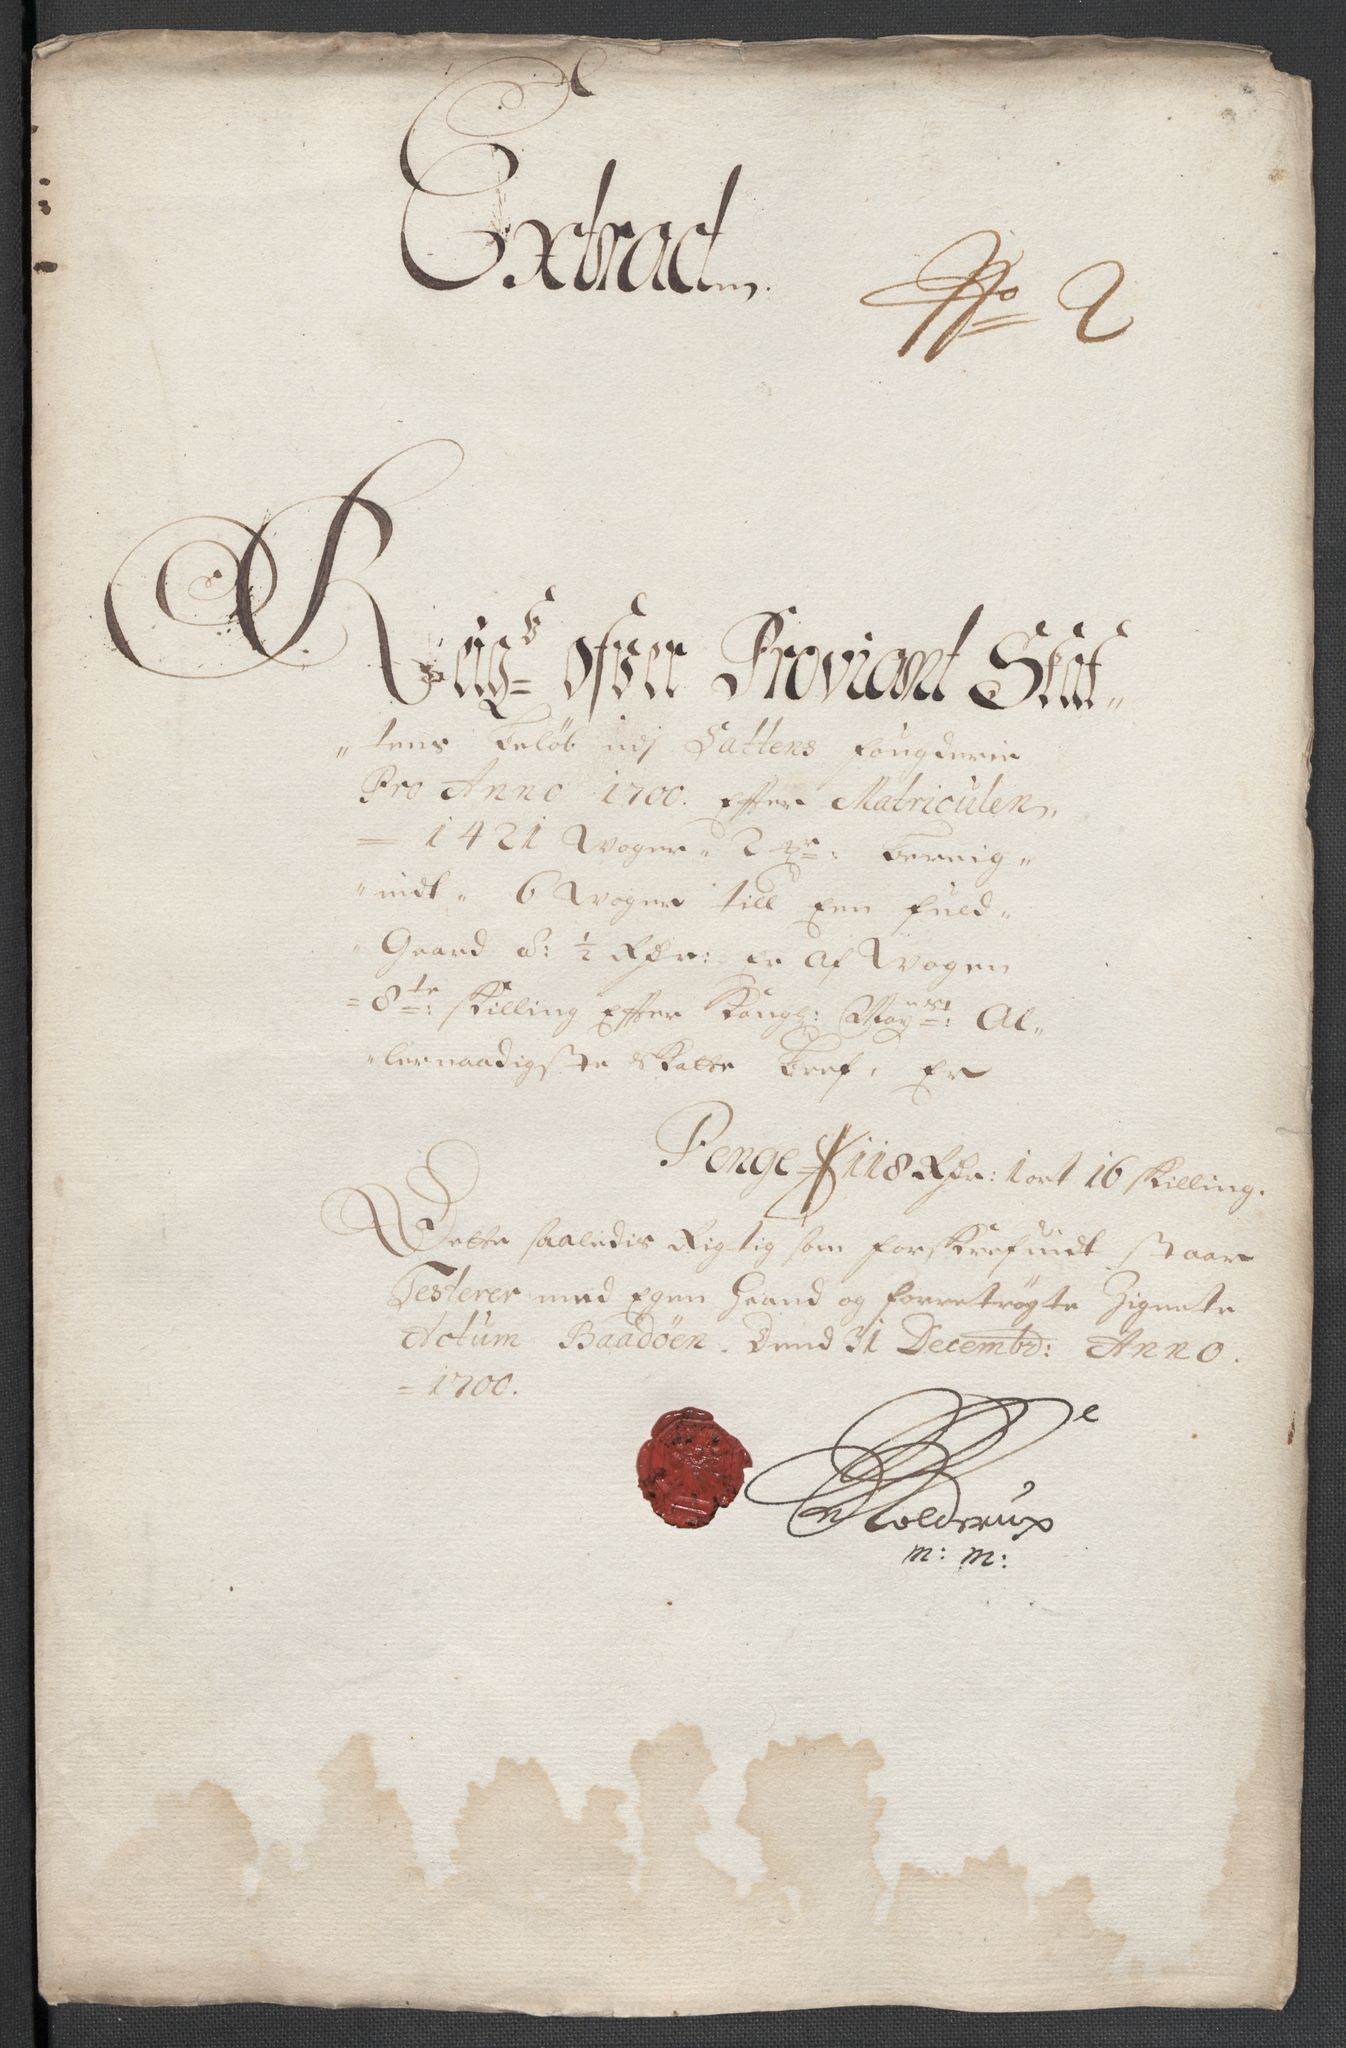 Extract
No 2
Reigs ofver Proviant Skat
tens beløb udj Saltens fougderie
Pro Anno 1700. effter Matriculen
1421 Woger 2 pr: bereig
nidt 6 Woger till een fuld
Gaard a: ½ Rdr: er af Wogen
8te: skilling effter Kongl: May:st: Al
lernaadigste skatte bref, er
Penge 118 Rdr: 1 ort 16 skilling.
Dette saaledis Rigtig som forskrefuidt staar
Testerer med egen Haand og forretrøgte Zignete
Actum Baadøen. Dend 31 Decembr: Anno.
1700.
Rolderup
m: m: